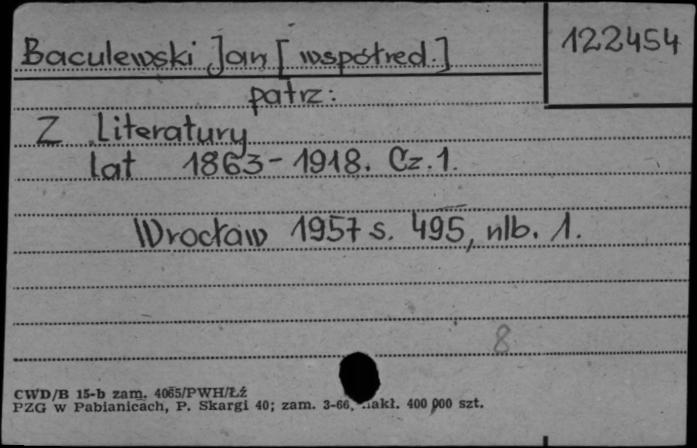 Baculewski Jan [współred.]
122454
patrz:
Z Literatury
lat 1863-1918. Cz. 1.
Wrocław 1957 s. 495, nlb. 1.
8
CWD/B 15-b zam. 4065/PWH/Łź
PZG w Pabianicach, P. Skargi 40; zam. 3-66, nakł. 400 000 szt.